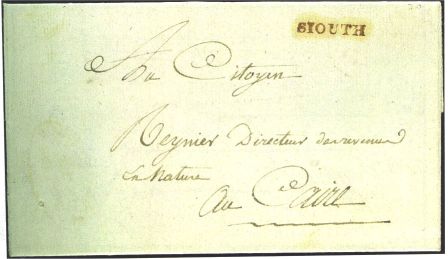 SIOUTH
Au Citoyen
Reynier Directeur des revenus
En Nature
Au Caire